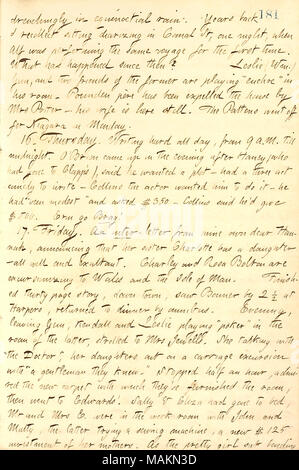 drenchingly in equinoctial rain. Years back
I recollect sitting drowsing in Canal St, one night, when
Alf was performing the same voyage for the first time.
What has happened since then? Leslie, (Wm.)
Gun, and two friends of the former are playing "euchre" in
his room. père has been expelled the house by
Mrs Potter — his wife is here still. The Pattens went off
for Niagara on Monday.
16. Thursday. Writing hard all day, from 9 A.M. till
midnight. O'Brien came up in the evening after Haney, (who had
gone to Clapp's), said he wanted a plot — had a
to write — Collins the actor wanted him to do it — he
had been modest and asked $350 — Collins said he'd give
$500. Erin go Bragh!
17. Friday. A letter from mine own dear Han-
nah, announcing that her sister Charlotte has a daughter
— all well and exultant. Charley and Rosa Bolton are
excursionizing to Wales and the Isle of Man. Finish-
ed thirty page story, down town, saw Bonner by 2 ½ at
Harpers, returned to dinner by omnibus. Evening,
leaving Gun, Kendall and Leslie playing "poker" in the
room of the latter, strolled to Mrs Jewell's. She talking with
"the Doctor," her daughters out on a carriage excursion
with "a gentleman they knew." Stopped half an hour, admi-
red the new carpet with which they've furnished the room,
then went to Edwards'. Sally & Eliza had gone to bed,
Mr and Mrs E. were in the work room with John and
Matty, the latter trying a sewing machine, a new $125
investment of her mothers. As the pretty girl sat bending
181
alamy
Image ID: MAKN3D
www.alamy.com